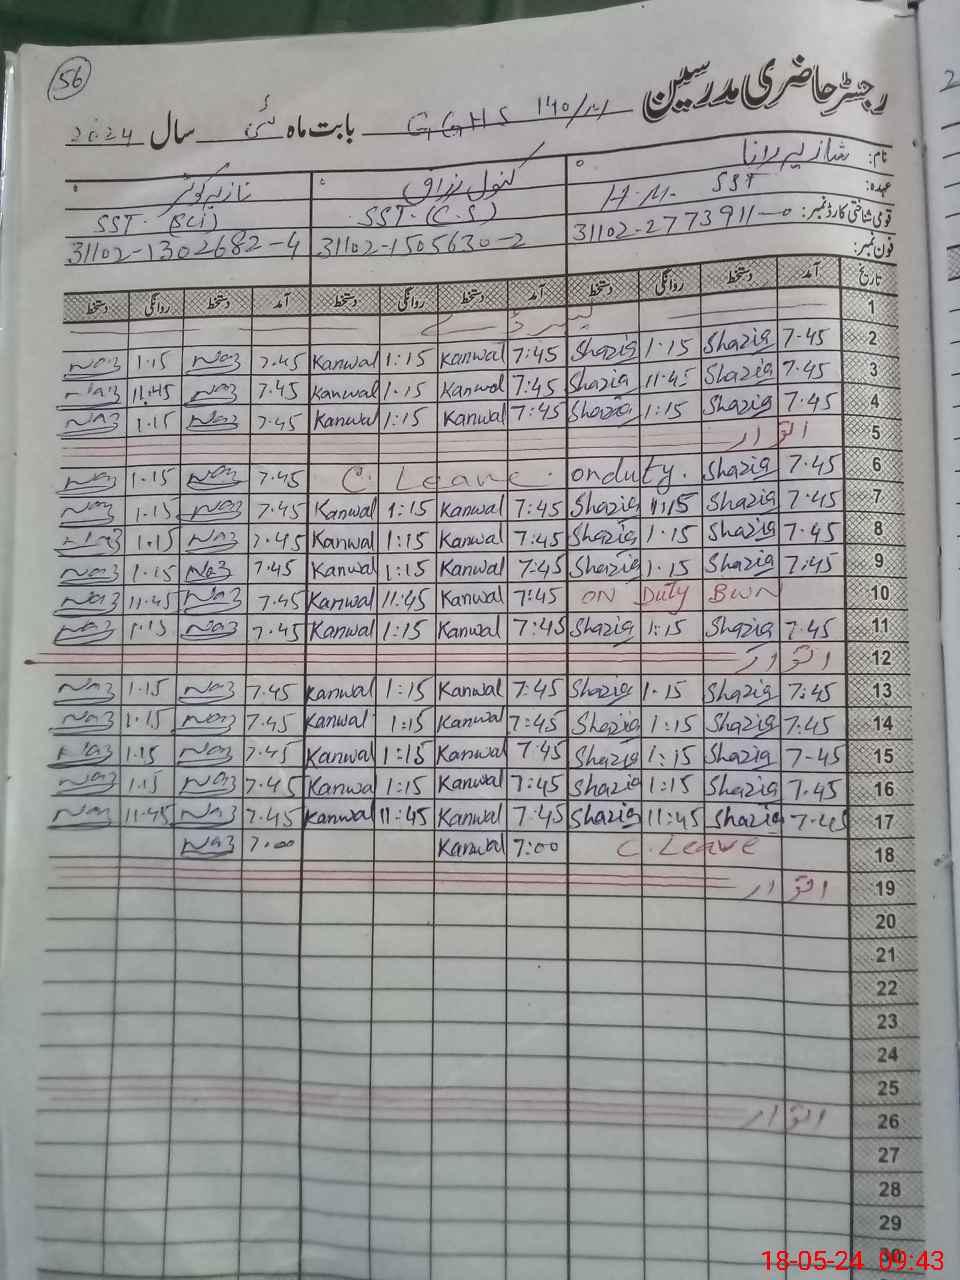 56
رجسٹر حاضری مدرسین GGHS 140/ بابت ماہ مئی سال 2024
نام: شازیہ رانا کنول رزاق نازیہ کوثر
عہدہ: H.M. SST SST. (C.S) SST. (Sci)
قومی شناختی کارڈ نمبر: 31102-2773911-0 31102-1505630-2 31102-1302682-4
فون نمبر:
تاریخ آمد دستخط روانگی دستخط آمد دستخط روانگی دستخط آمد دستخط روانگی دستخط
1
2 7.45 Shazia 1.15 Shazia 7:45 Kanwal 1:15 Kanwal 7.45 Naz 1.15 Naz
3 7.45 Shazia 11.45 Shazia 7:45 Kanwal 1.15 Kanwal 7.45 Naz 11.45 Naz
4 7.45 Shazia 1:15 Shazia 7:45 Kanwal 1:15 Kanwal 7.45 Naz 1.15 Naz
5 اتوار
6 7.45 Shazia onduty. C. Leave. 7.45 Naz 1.15 Naz
7 7.45 Shazia 11:15 Shazia 7:45 Kanwal 1:15 Kanwal 7.45 Naz 1.15 Naz
8 7.45 Shazia 1.15 Shazia 7:45 Kanwal 1:15 Kanwal 7.45 Naz 1.15 Naz
9 7.45 Shazia 1.15 Shazia 7:45 Kanwal 1:15 Kanwal 7.45 Naz 1.15 Naz
10 ON Duty BWN 7:45 Kanwal 11:45 Kanwal 7.45 Naz 11.45 Naz
11 7.45 Shazia 1:15 Shazia 7:45 Kanwal 1:15 Kanwal 7.45 Naz 1.15 Naz
12 اتوار
13 7:45 Shazia 1.15 Shazia 7:45 Kanwal 1:15 Kanwal 7.45 Naz 1.15 Naz
14 7.45 Shazia 1:15 Shazia 7:45 Kanwal 1:15 Kanwal 7.45 Naz 1.15 Naz
15 7-45 Shazia 1:15 Shazia 7:45 Kanwal 1:15 Kanwal 7.45 Naz 1.15 Naz
16 7.45 Shazia 1:15 Shazia 7:45 Kanwal 1:15 Kanwal 7.45 Naz 1.15 Naz
17 7.45 Shazia 11:45 Shazia 7:45 Kanwal 11:45 Kanwal 7.45 Naz 11.45 Naz
18 C. Leave 7:00 Kanwal 7.00 Naz
19 اتوار
20
21
22
23
24
25
26 اتوار
27
28
29
30
18-05-24 09:43